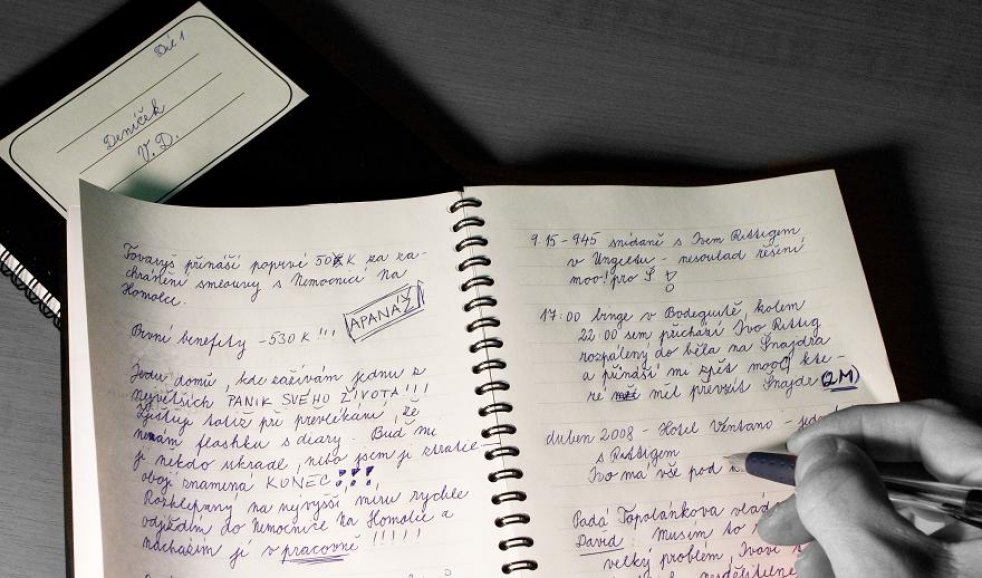 Díl 1
Deníček
V. D.
Tovaryš přináší poprvé 50 K za za-
chránění smlouvy s Nemocnicí Na
Homolce.
APANÁŽ
První benefity - 530 K !!!
Jedu domů, kde zažívám jednu z
největších PANIK SVÉHO ŽIVOTA!!!!
Zjistuji totiž při převlékání, že
nemám flashku s diary. Buď mi
ji někdo ukradl, nebo jsem ji ztratil -
obojí znamená KONEC !!!
Rozklepaný na nejvyšší míru rychle
odjíždím do Nemocnice Na Homolce a
nacházím ji v pracovně !!!!!
9.15 - 945 snídaně s Ivem Rittigem
v Ungeltu - nesoulad řešení
moo! pro Š !
17:00 binge v Bodeguitě, kolem
22:00 sem přichází Ivo Rittig
rozpálený do běla na Šnajdra
a přináší mi zpět moo, kte-
ré měl převzít Šnajdr (2M)
duben 2008 - Hotel Ventano -
s Rittigem
Ivo má vše pod
Padá Topolánkova
David. Musím to
velký problém, Ivovi